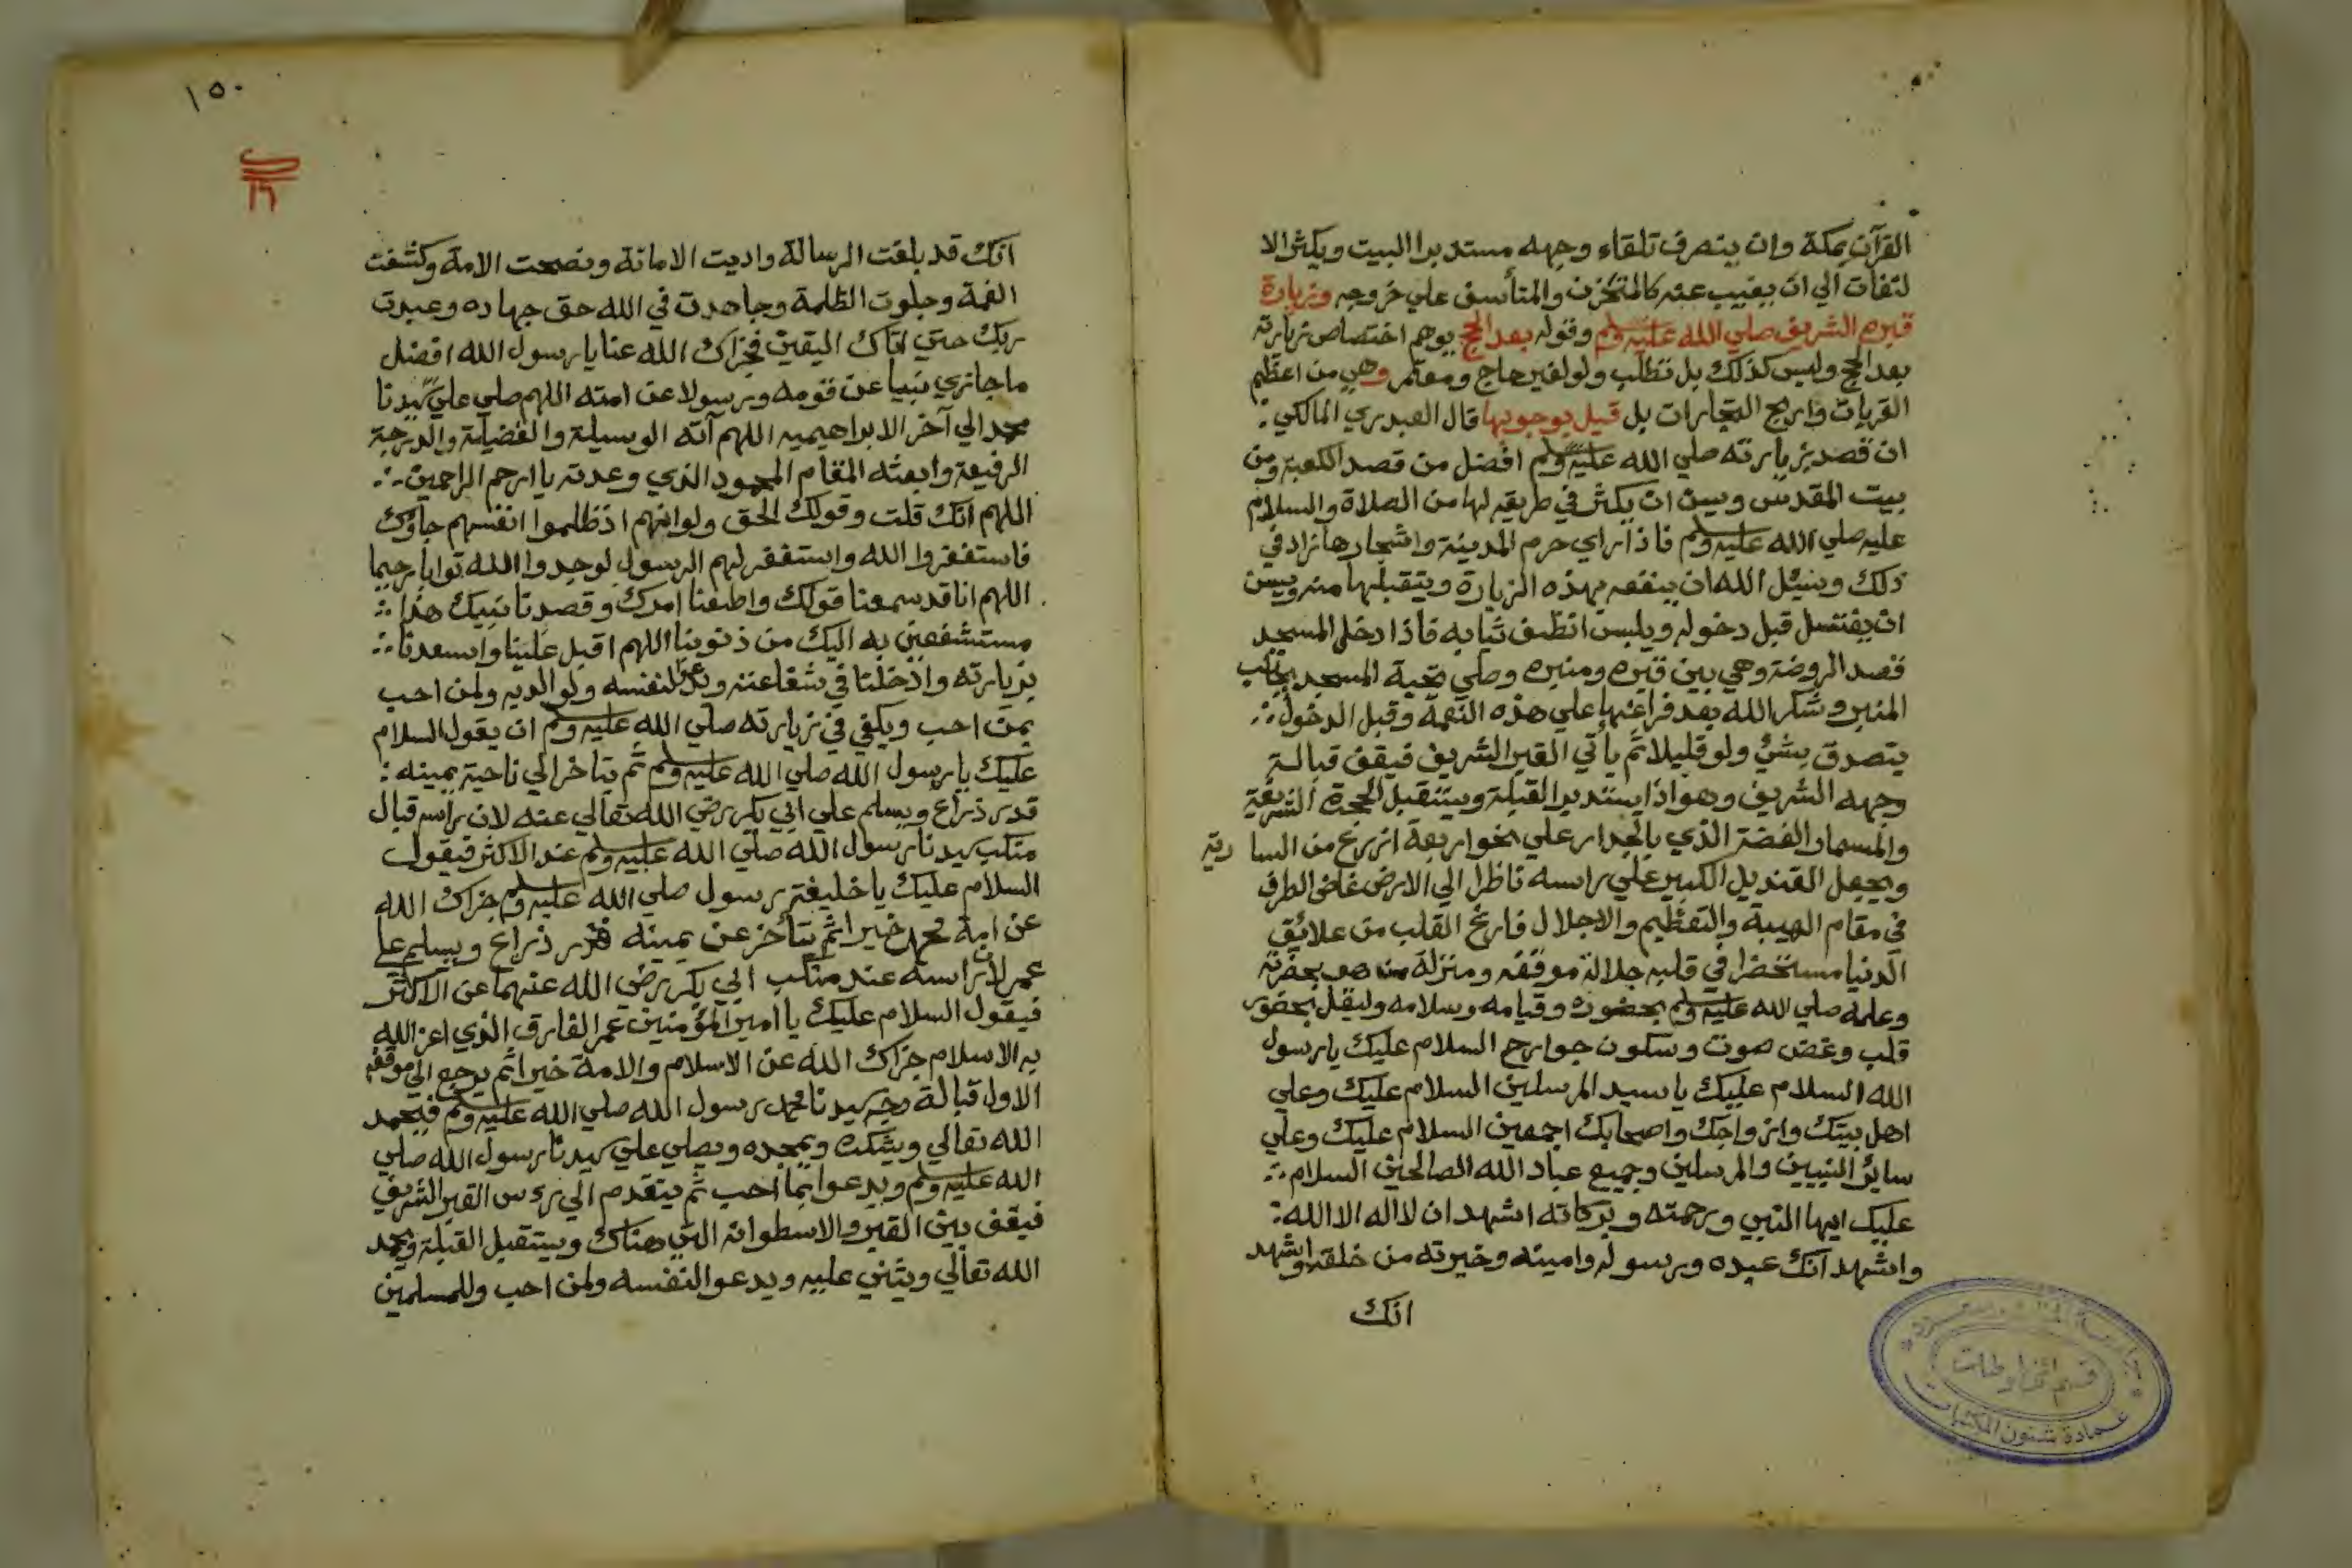 القرآن بمكة وان ينصرف تلقاء وجهه مستدبرا البيت ويكثر الا
لتفات الي ان يغيب عنه كالمتحزن والمتأسف علي خروجه وزيارة
قبره الشريف صلي الله عليه وسلم وقوله بعد الحج يوهم اختصاص زيارته
بعد الحج وليس كذلك بل تطلب ولو لغير حاج ومعتمر وهي من اعظم
القربات واربح التجارات بل قيل بوجوبها قال العبدري المالكي
ان قصد زيارته صلي الله عليه وسلم افضل من قصد الكعبة ومن
بيت المقدس ويسن ان يكثر في طريقه لها من الصلاة والسلام
عليه صلي الله عليه وسلم فاذا راي حرم المدينة واشجارها زاد في
ذلك ويسئل الله ان ينفعه بهذه الزيارة ويتقبلها منه ويسن
ان يغتسل قبل دخوله ويلبس انظف ثيابه فاذا دخل المسجد
قصد الروضة وهي بين قبره ومنبره وصلي تحية المسجد بجانب
المنبر وشكر الله بعد فراغها علي هذه النعمة وقبل الدخول
يتصدق بشئ ولو قليلا ثم يأتي القبر الشريف فيقف قبالة
وجهه الشريف وهو اذا يستدبر القبلة ويستقبل الحجرة الشريفة
والمسمار الفضة الذي بالجدار علي نحو اربعة ازرع من السا رية
ويجعل القنديل الكبير علي راسه ناظرا الي الارض غاض الطرف
في مقام الهيبة والتعظيم والاجلال فارغ القلب من علائق
الدنيا مستحضرا في قلبه جلالة موقفه ومنزلة من هو بحضرته
وعلمه صلي الله عليه وسلم بحضوره وقيامه وسلامه وليقل بحضور
قلب وغض صوت وسكون جوارح السلام عليك يا رسول
الله السلام عليك يا سيد المرسلين السلام عليك وعلي
اهل بيتك وازواجك واصحابك اجمعين السلام عليك وعلي
سائر النبيين والمرسلين وجميع عباد الله الصالحين السلام
عليك ايها النبي ورحمته وبركاته اشهد ان لااله الا الله
واشهد انك عبده ورسوله وامينه وخيرته من خلقه واشهد
انك
جامعة الملك سعود
قسم المخطوطات
عمادة شئون المكتبات
١٥٠
انك قد بلغت الرسالة واديت الامانة ونصحت الامة وكشفت
الغمة وجلوت الظلمة وجاهدت في الله حق جهاده وعبدت
ربك حتي اتاك اليقين فجزاك الله عنا يا رسول الله افضل
ما جازي نبيا عن قومه ورسولا عن امته اللهم صلي علي سيدنا
محمد الي آخر الابراهيميه اللهم آته الوسيلة والفضيلة والدرجة
الرفيعة وابعثه المقام المحمود الذي وعدته يا ارحم الراحمين
اللهم انك قلت وقولك الحق ولو انهم اذ ظلموا انفسهم جاؤك
فاستغفروا الله واستغفر لهم الرسول لوجدوا الله توابا رحيما
اللهم انا قد سمعنا قولك واطعنا امرك وقصدنا نبيك هذا
مستشفعين به اليك من ذنوبنا اللهم اقبل علينا واسعدنا
بزيارته وادخلنا في شفاعته ويدعوا لنفسه ولوالديه ولمن احب
بمن احب ويكفي في زيارته صلي الله عليه وسلم ان يقول السلام
عليك يا رسول الله صلي الله عليه وسلم ثم يتاخر الي ناحية يمينه
قدر ذراع ويسلم علي ابي بكر رضي الله تعالي عنه لان راسه قبال
منكب سيدنا رسول الله صلي الله عليه وسلم عند الاكثر فيقول
السلام عليك يا خليفة رسول صلي الله عليه وسلم جزاك الله
عن امة محمد خيرا ثم يتأخر عن يمينه قدر ذراع ويسلم علي
عمر لان راسه عند منكب ابي بكر رضي الله عنهما عن الاكثر
فيقول السلام عليك يا امير المؤمنين عمر الفارق الذي اعز الله
به الاسلام جزاك الله عن الاسلام والامة خيرا ثم يرجع الي موقفه
الاول قبالة وجه سيدنا محمد رسول الله صلي الله عليه وسلم فيحمد
الله تعالي ويشكره ويمجده ويصلي علي سيدنا رسول الله صلي
الله عليه وسلم ويدعوا بما احب ثم يتقدم الي رؤس القبر الشريف
فيقف بين القبر والاسطوانه التي هناك ويستقبل القبلة ويحمد
الله تعالي ويثني عليه ويدعو النفسه ولمن احب وللمسلمين